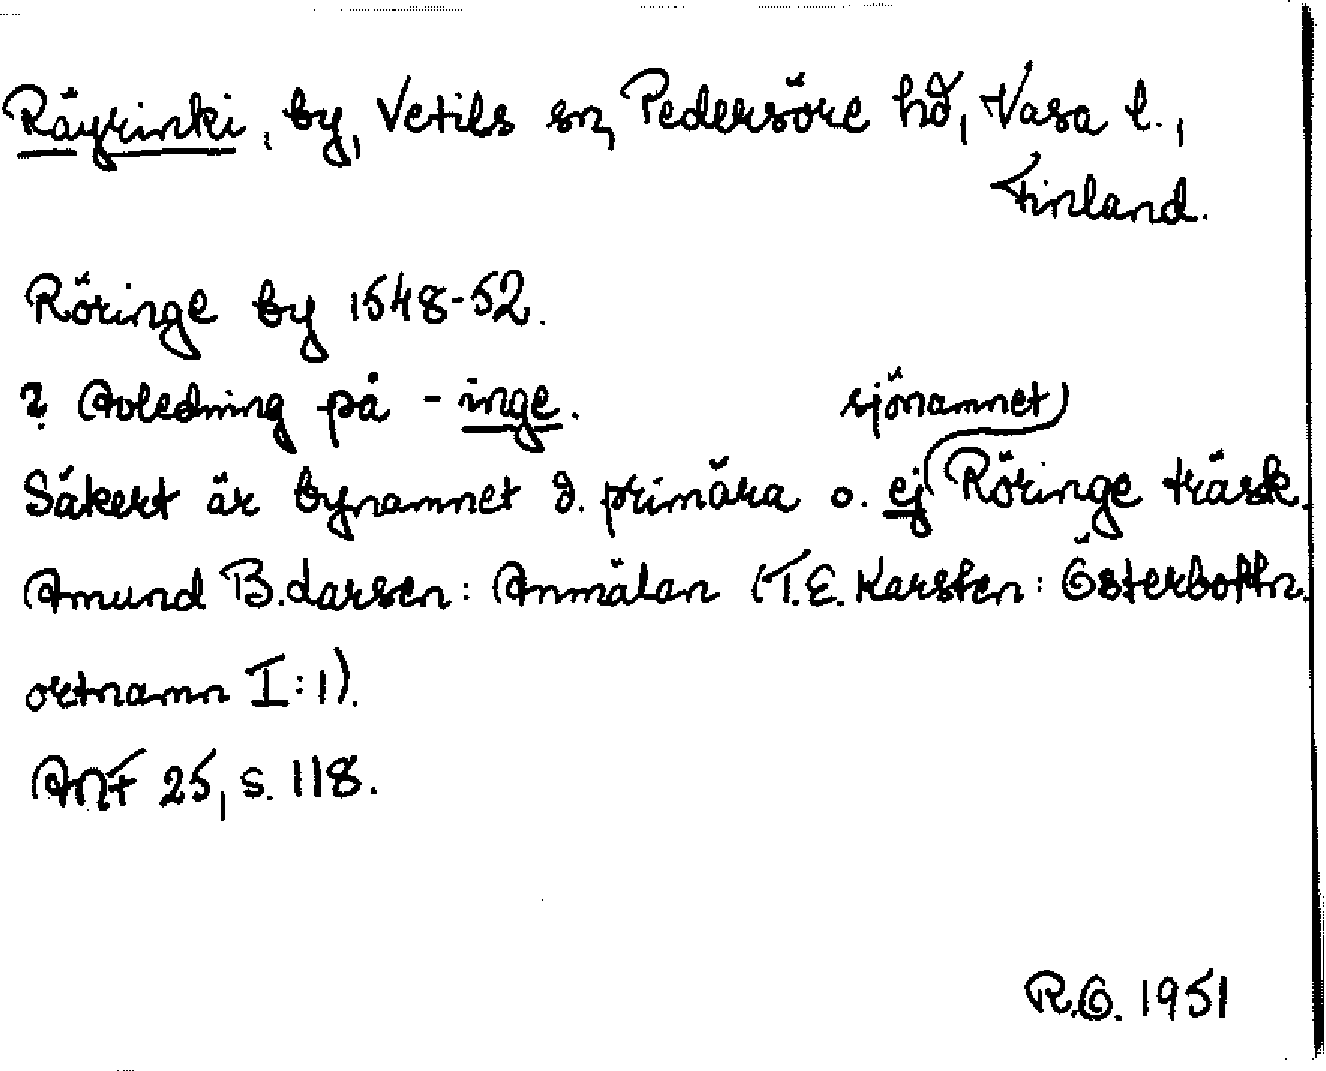 Räyrinki, by, Vetils sn, Pedersöre hd, Vasa l.,
Finland.
Röringe by 1548-52.
? Avledning på -inge.
sjönamnet
Säkert är bynamnet d. primära o. ej Röringe träsk.
Amund B. Larsen: Anmälan (T.E. Karsten: Österbottn.
ortnamn I:1).
ANF 25, s. 118.
R.O. 1951